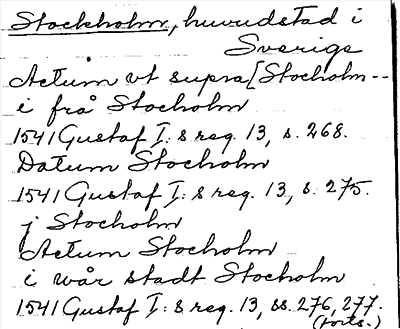 Stockholm, huvudstad i
Sverige
Actum vt supra [Stocholm--
i frå Stocholm
1541 Gustaf I:s reg. 13, s. 268.
Datum Stocholm
1541 Gustaf I:s reg. 13, s. 275.
j Stocholm
Actum Stocholm
i wår stadt Stocholm
1541 Gustaf I:s reg. 13, ss. 276, 277.
(forts.)